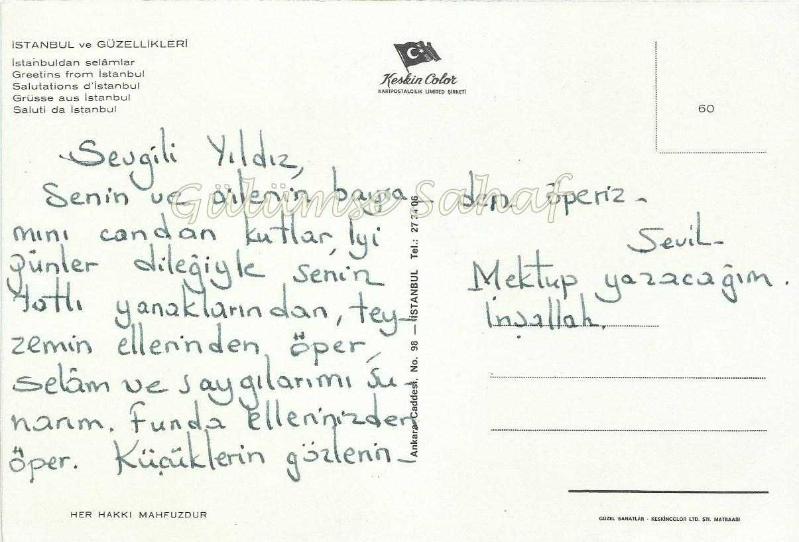 İSTANBUL ve GÜZELLİKLERİ
İstanbuldan selâmlar
Greetins from İstanbul
Salutations d'İstanbul
Grüsse aus İstanbul
Saluti da İstanbul
Keskin Color
KARTPOSTALCILIK LİMİTED ŞİRKETİ
60
Sevgili Yıldız,
Senin ve ailenin bayra-
mını candan kutlar, İyi
günler dileğiyle senin
tatlı yanaklarından, tey-
zemin ellerinden öper,
selâm ve saygılarımı su-
narım. Funda ellerinizden
öper. Küçüklerin gözlerin-
den öperiz.
Sevil
Mektup yazacağım.
İnşallah.
Gülümse Sahaf
Ankara Caddesi, No. 98 — İSTANBUL Tel.: 27 34 06
HER HAKKI MAHFUZDUR
GÜZEL SANATLAR - KESKİNCOLOR LTD. ŞTİ. MATBAASI